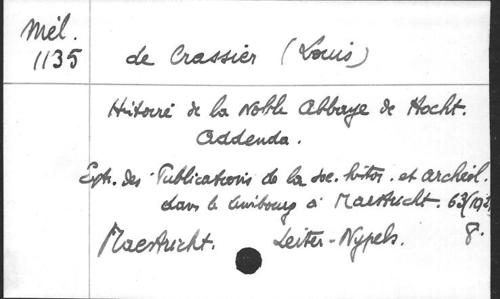 Mél.
1135
de Crassier (Louis)
Histoire de la Noble Abbaye de Hocht.
Addenda.
Extr. des Publications de la soc. histor. et archéol.
dans le Limbourg à Maestricht. 63/
Maestricht. Leiter-Nypels. 8.